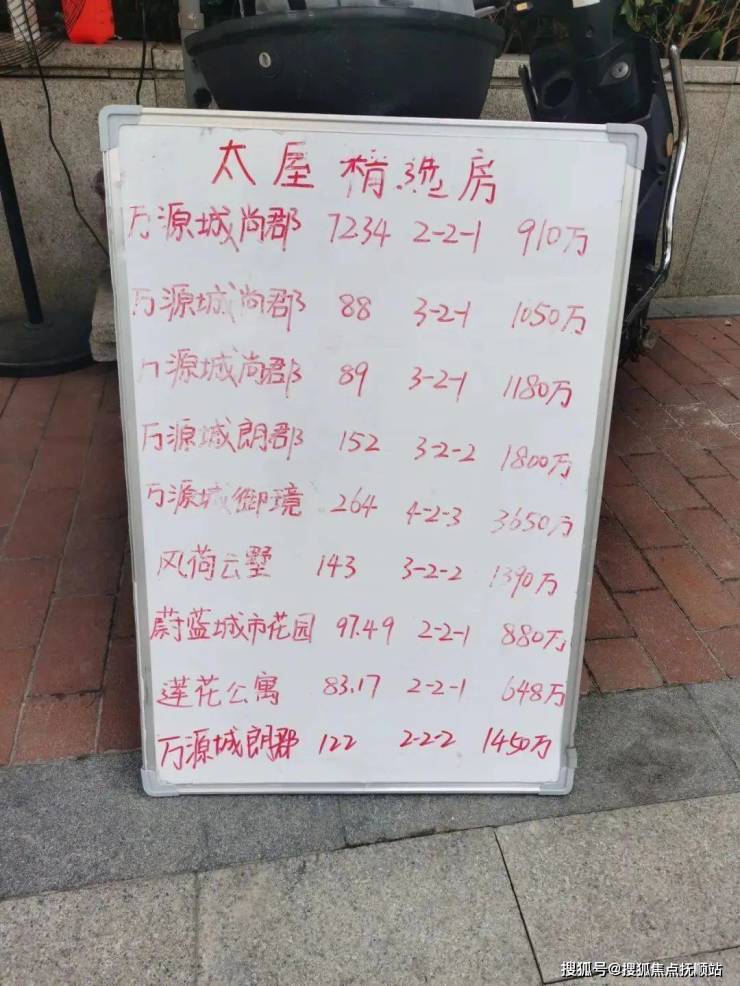 太屋精选房
万源城尚郡 7234 2-2-1 910万
万源城尚郡 88 3-2-1 1050万
万源城尚郡 89 3-2-1 1180万
万源城朗郡 152 3-2-2 1800万
万源城御境 264 4-2-3 3650万
风荷云墅 143 3-2-2 1390万
蔚蓝城市花园 97.49 2-2-1 880万
莲花公寓 83.17 2-2-1 648万
万源城朗郡 122 2-2-2 1450万
搜狐号@搜狐焦点抚顺站